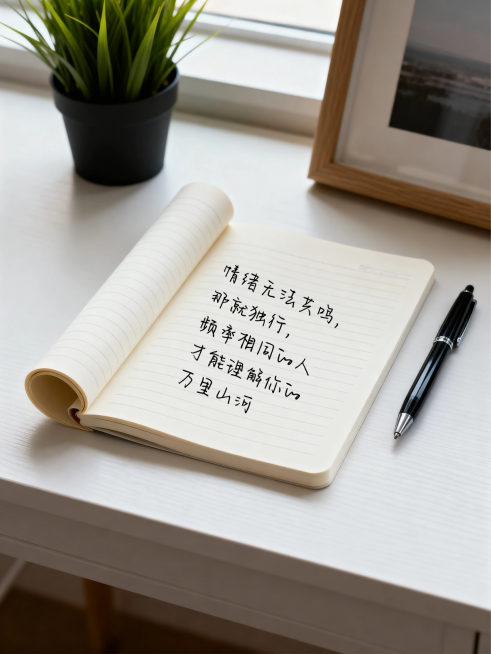 情绪无法共鸣,
那就独行,
频率相同的人
才能理解你的
万里山河